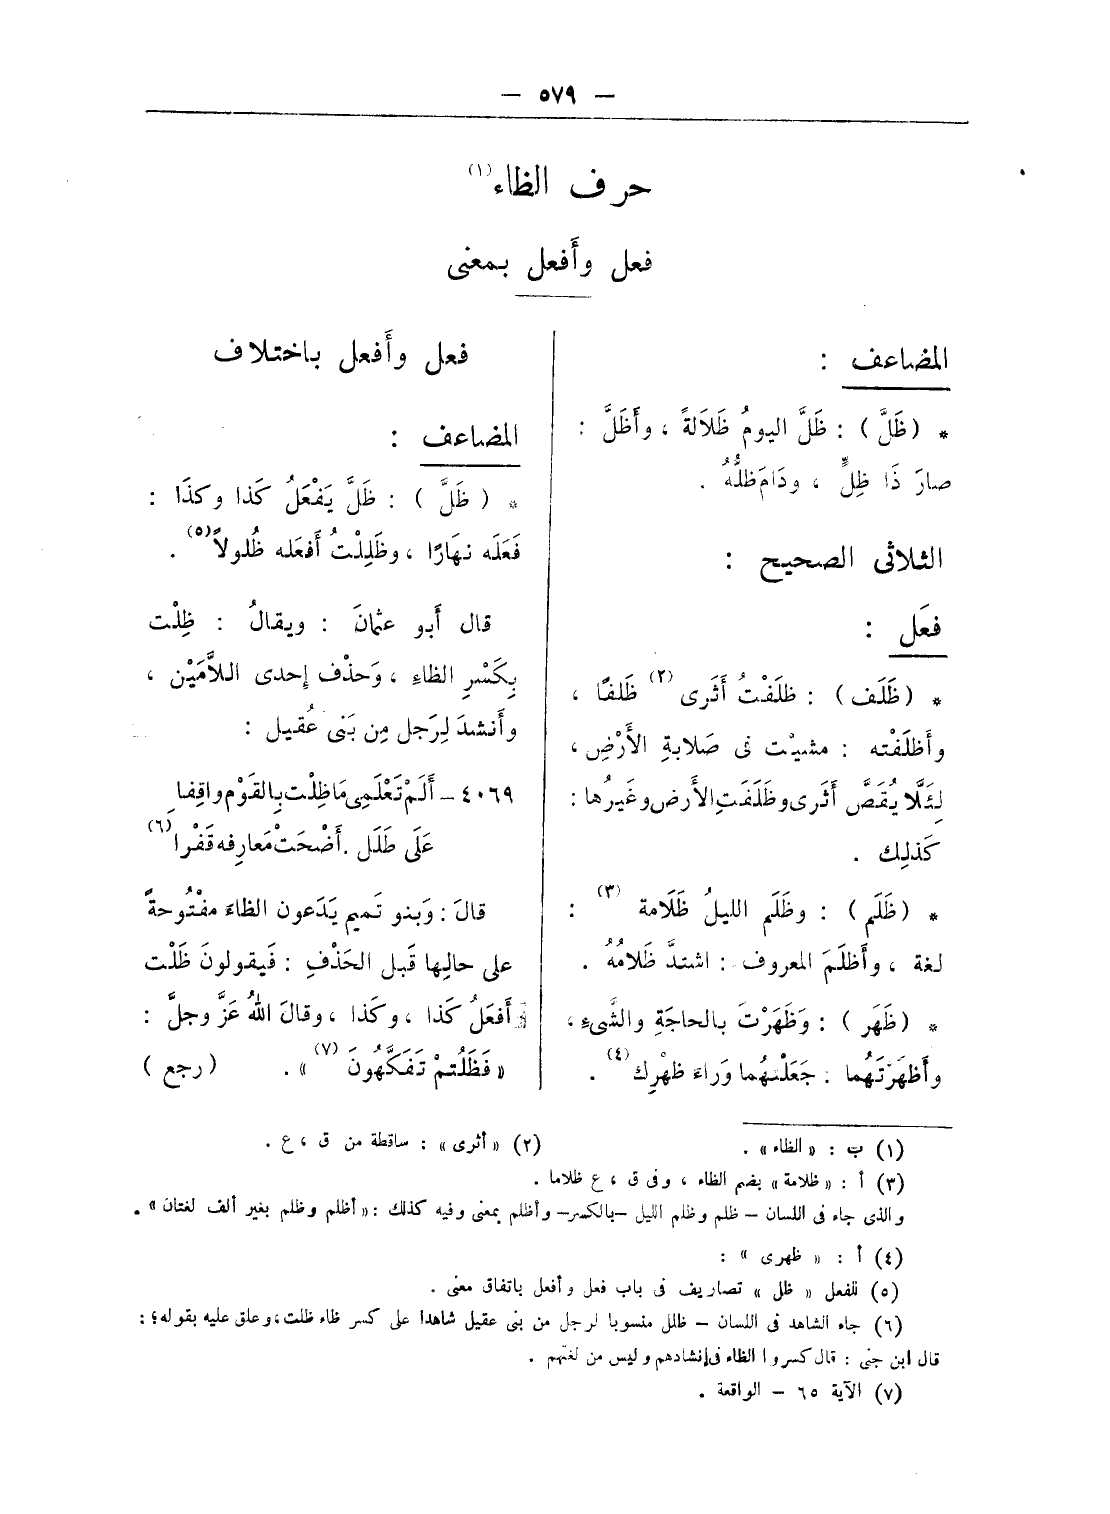 — ٥٧٩ —
حرف الظاء(١)
فعل وأَفعل بمعنى
المضاعف :
* (ظَلَّ) : ظَلَّ اليومُ ظَلاَلةً ، وأَظَلَّ :
صارَ ذَا ظِلٍّ ، ودَامَ ظلُّهُ .
الثلاثى الصحيح :
فعَل :
* (ظَلَف) : ظلَفْتُ أَثَرى (٢) ظَلفًا ،
وأَظلَفْته : مشيْت فى صَلابةِ الأَرْضِ ،
لِئَلَّا يُقَصَّ أَثَرى وظَلَفَتِ الأَرض وغيرُها :
كَذلِك .
* (ظَلَم) : وظَلَم الليلُ ظَلَامة (٣) :
لغة ، وأَظلَمَ المعروف : اشتدَّ ظَلامُهُ .
* (ظَهَر) : وَظَهَرْتَ بالحاجَةِ والشَّىءِ ،
وأَظهَرْتَهُما : جَعَلْتهُما وَراءَ ظهْرِك (٤) .
فعل وأَفعل باختلاف
المضاعف :
* (ظَلَّ) : ظَلَّ يَفْعَلُ كَذا وكذَا :
فَعَلَه نهَارًا ، وظَلِلْتُ أَفعَله ظُلولاً (٥) .
قال أَبو عثمانَ : ويقالُ : ظِلْت
بِكَسْرِ الظاءِ ، وَحذْف إِحدى اللاَّمَيْن ،
وأَنشدَ لِرَجل مِن بَنى عُقيل :
٤٠٦٩ – أَلَمْ تَعْلَمِى مَا ظِلْت بِالقَوْم واقِفا
عَلَى طَلَل . أَضْحَتْ مَعارِفه قَفْرا (٦)
قالَ : وَبنو تَميم يَدَعون الظاءَ مفْتُوحةً
على حالِها قَبل الحَذْفِ : فَيقولونَ ظَلْت
أَفعَلُ كَذا ، وكَذا ، وقالَ اللهُ عَزَّ وجلَّ :
« فَظَلْتُمْ تَفَكَّهُونَ (٧) » . (رجع)
(١) ب : « الظاء » .
(٢) « أثرى » : ساقطة من ق ، ع .
(٣) أ : « ظلامة » بضم الظاء ، وفى ق ، ع ظلاما .
والذى جاء فى اللسان – ظلم وظلم الليل – بالكسر – وأظلم بمعنى وفيه كذلك : « أظلم وظلم بغير ألف لغتان » .
(٤) أ : « ظهرى » :
(٥) للفعل « ظل » تصاريف فى باب فعل وأفعل باتفاق معنى .
(٦) جاء الشاهد فى اللسان – ظلل منسوبا لرجل من بنى عقيل شاهدا على كسر ظاء ظلت ، وعلق عليه بقوله ؛ :
قال ابن جنى : قال كسروا الظاء فى إنشادهم وليس من لغتهم .
(٧) الآية ٦٥ – الواقعة .